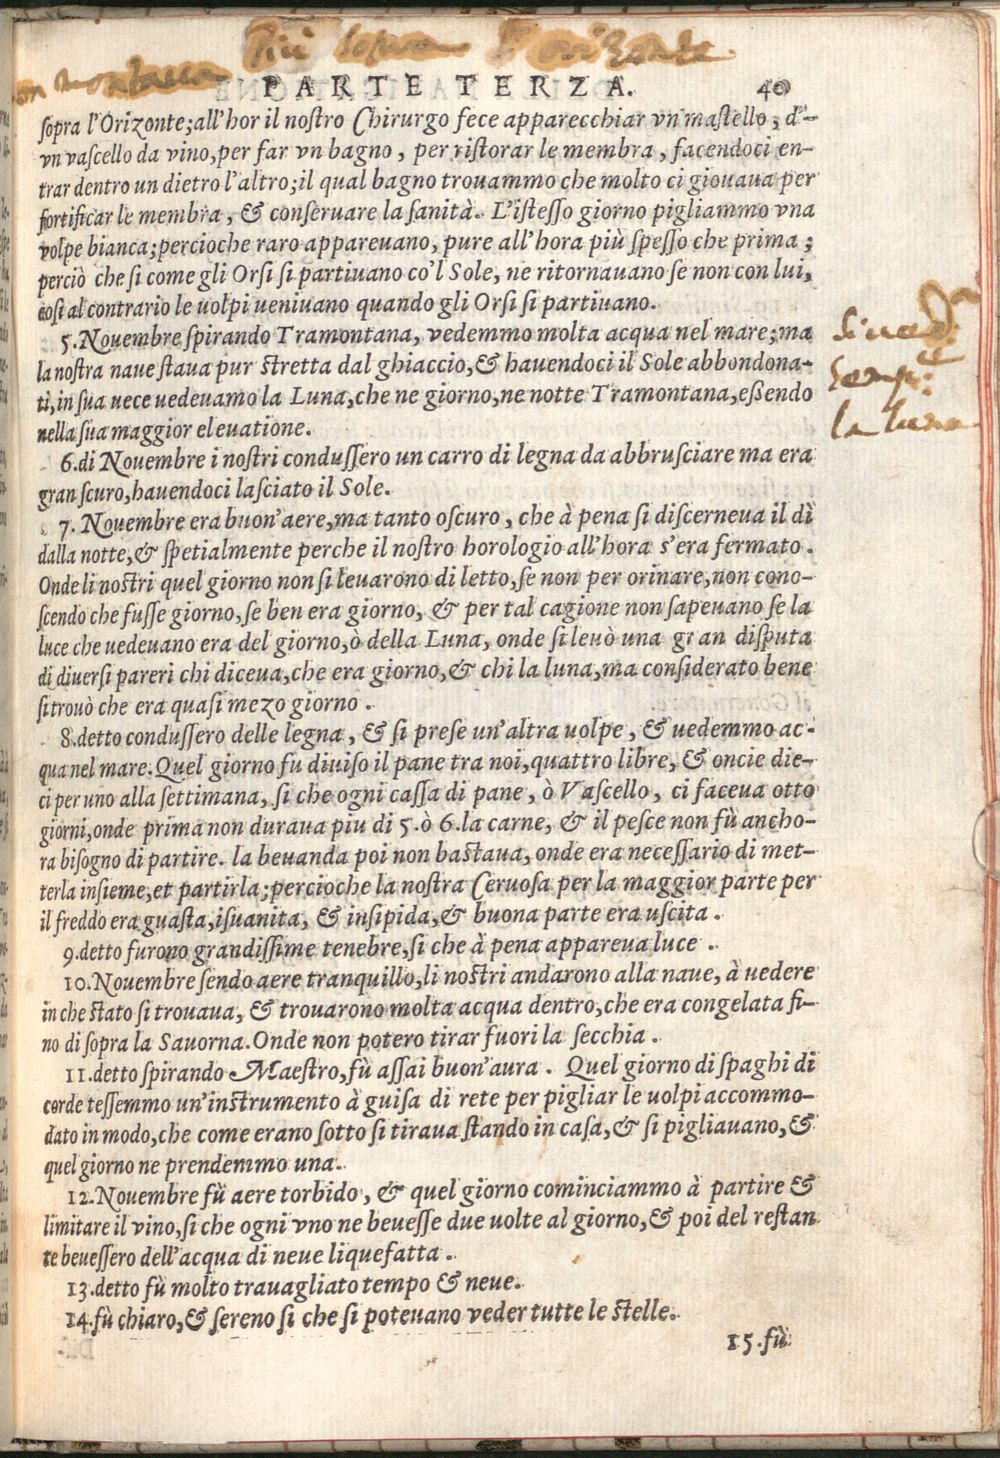 non montava Più sopra l'orizonte.
PARTE TERZA. 40
sopra l'Orizonte; all'hor il nostro Chirurgo fece apparecchiar vn mastello, d'-
vn vascello da vino, per far vn bagno, per ristorar le membra, facendoci en-
trar dentro un dietro l'altro; il qual bagno trouammo che molto ci giouaua per
fortificar le membra, & conseruare la sanità. L'istesso giorno pigliammo vna
volpe bianca; percioche raro appareuano, pure all'hora più spesso che prima;
perciò che si come gli Orsi si partiuano co'l Sole, ne ritornauano se non con lui,
cosi al contrario le uolpi ueniuano quando gli Orsi si partiuano.
5. Nouembre spirando Tramontana, vedemmo molta acqua nel mare; ma
la nostra naue staua pur stretta dal ghiaccio, & hauendoci il Sole abbondona-
ti, in sua uece uedeuamo la Luna, che ne giorno, ne notte Tramontana, eßendo
nella sua maggior eleuatione.
Si vede
semp:e
la luna
6. di Nouembre i nostri condussero un carro di legna da abbrusciare ma era
gran scuro, hauendoci lasciato il Sole.
7. Nouembre era buon'aere, ma tanto oscuro, che à pena si discerneua il dì
dalla notte, & spetialmente perche il nostro horologio all'hora s'era fermato.
Onde li nostri quel giorno non si leuarono di letto, se non per orinare, non cono-
scendo che fusse giorno, se ben era giorno, & per tal cagione non sapeuano se la
luce che uedeuano era del giorno, ò della Luna, onde si leuò una gran disputa
di diuersi pareri chi diceua, che era giorno, & chi la luna, ma considerato bene
si trouò che era quasi mezo giorno.
8. detto condussero delle legna, & si prese un'altra uolpe, & uedemmo ac-
qua nel mare. Quel giorno fu diuiso il pane tra noi, quattro libre, & oncie die-
ci per uno alla settimana, si che ogni cassa di pane, ò Vascello, ci faceua otto
giorni, onde prima non duraua piu di 5. ò 6. la carne, & il pesce non fù ancho-
ra bisogno di partire. la beuanda poi non bastaua, onde era necessario di met-
terla insieme, et partirla; percioche la nostra Ceruosa per la maggior parte per
il freddo era guasta, isuanita, & insipida, & buona parte era uscita.
9. detto furono grandissime tenebre, si che à pena appareua luce.
10. Nouembre sendo aere tranquillo, li nostri andarono alla naue, à uedere
in che stato si trouaua, & trouarono molta acqua dentro, che era congelata fi-
no di sopra la Sauorna. Onde non potero tirar fuori la secchia.
11. detto spirando Maestro, fù assai buon'aura. Quel giorno di spaghi di
corde tessemmo un'instrumento à guisa di rete per pigliar le uolpi accommo-
dato in modo, che come erano sotto si tiraua stando in casa, & si pigliauano, &
quel giorno ne prendemmo una.
12. Nouembre fù aere torbido, & quel giorno cominciammo à partire &
limitare il vino, si che ogni vno ne beuesse due uolte al giorno, & poi del restan
te beuessero dell'acqua di neue liquefatta.
13. detto fù molto trauagliato tempo & neue.
14. fù chiaro, & sereno si che si poteuano veder tutte le stelle.
15. fù